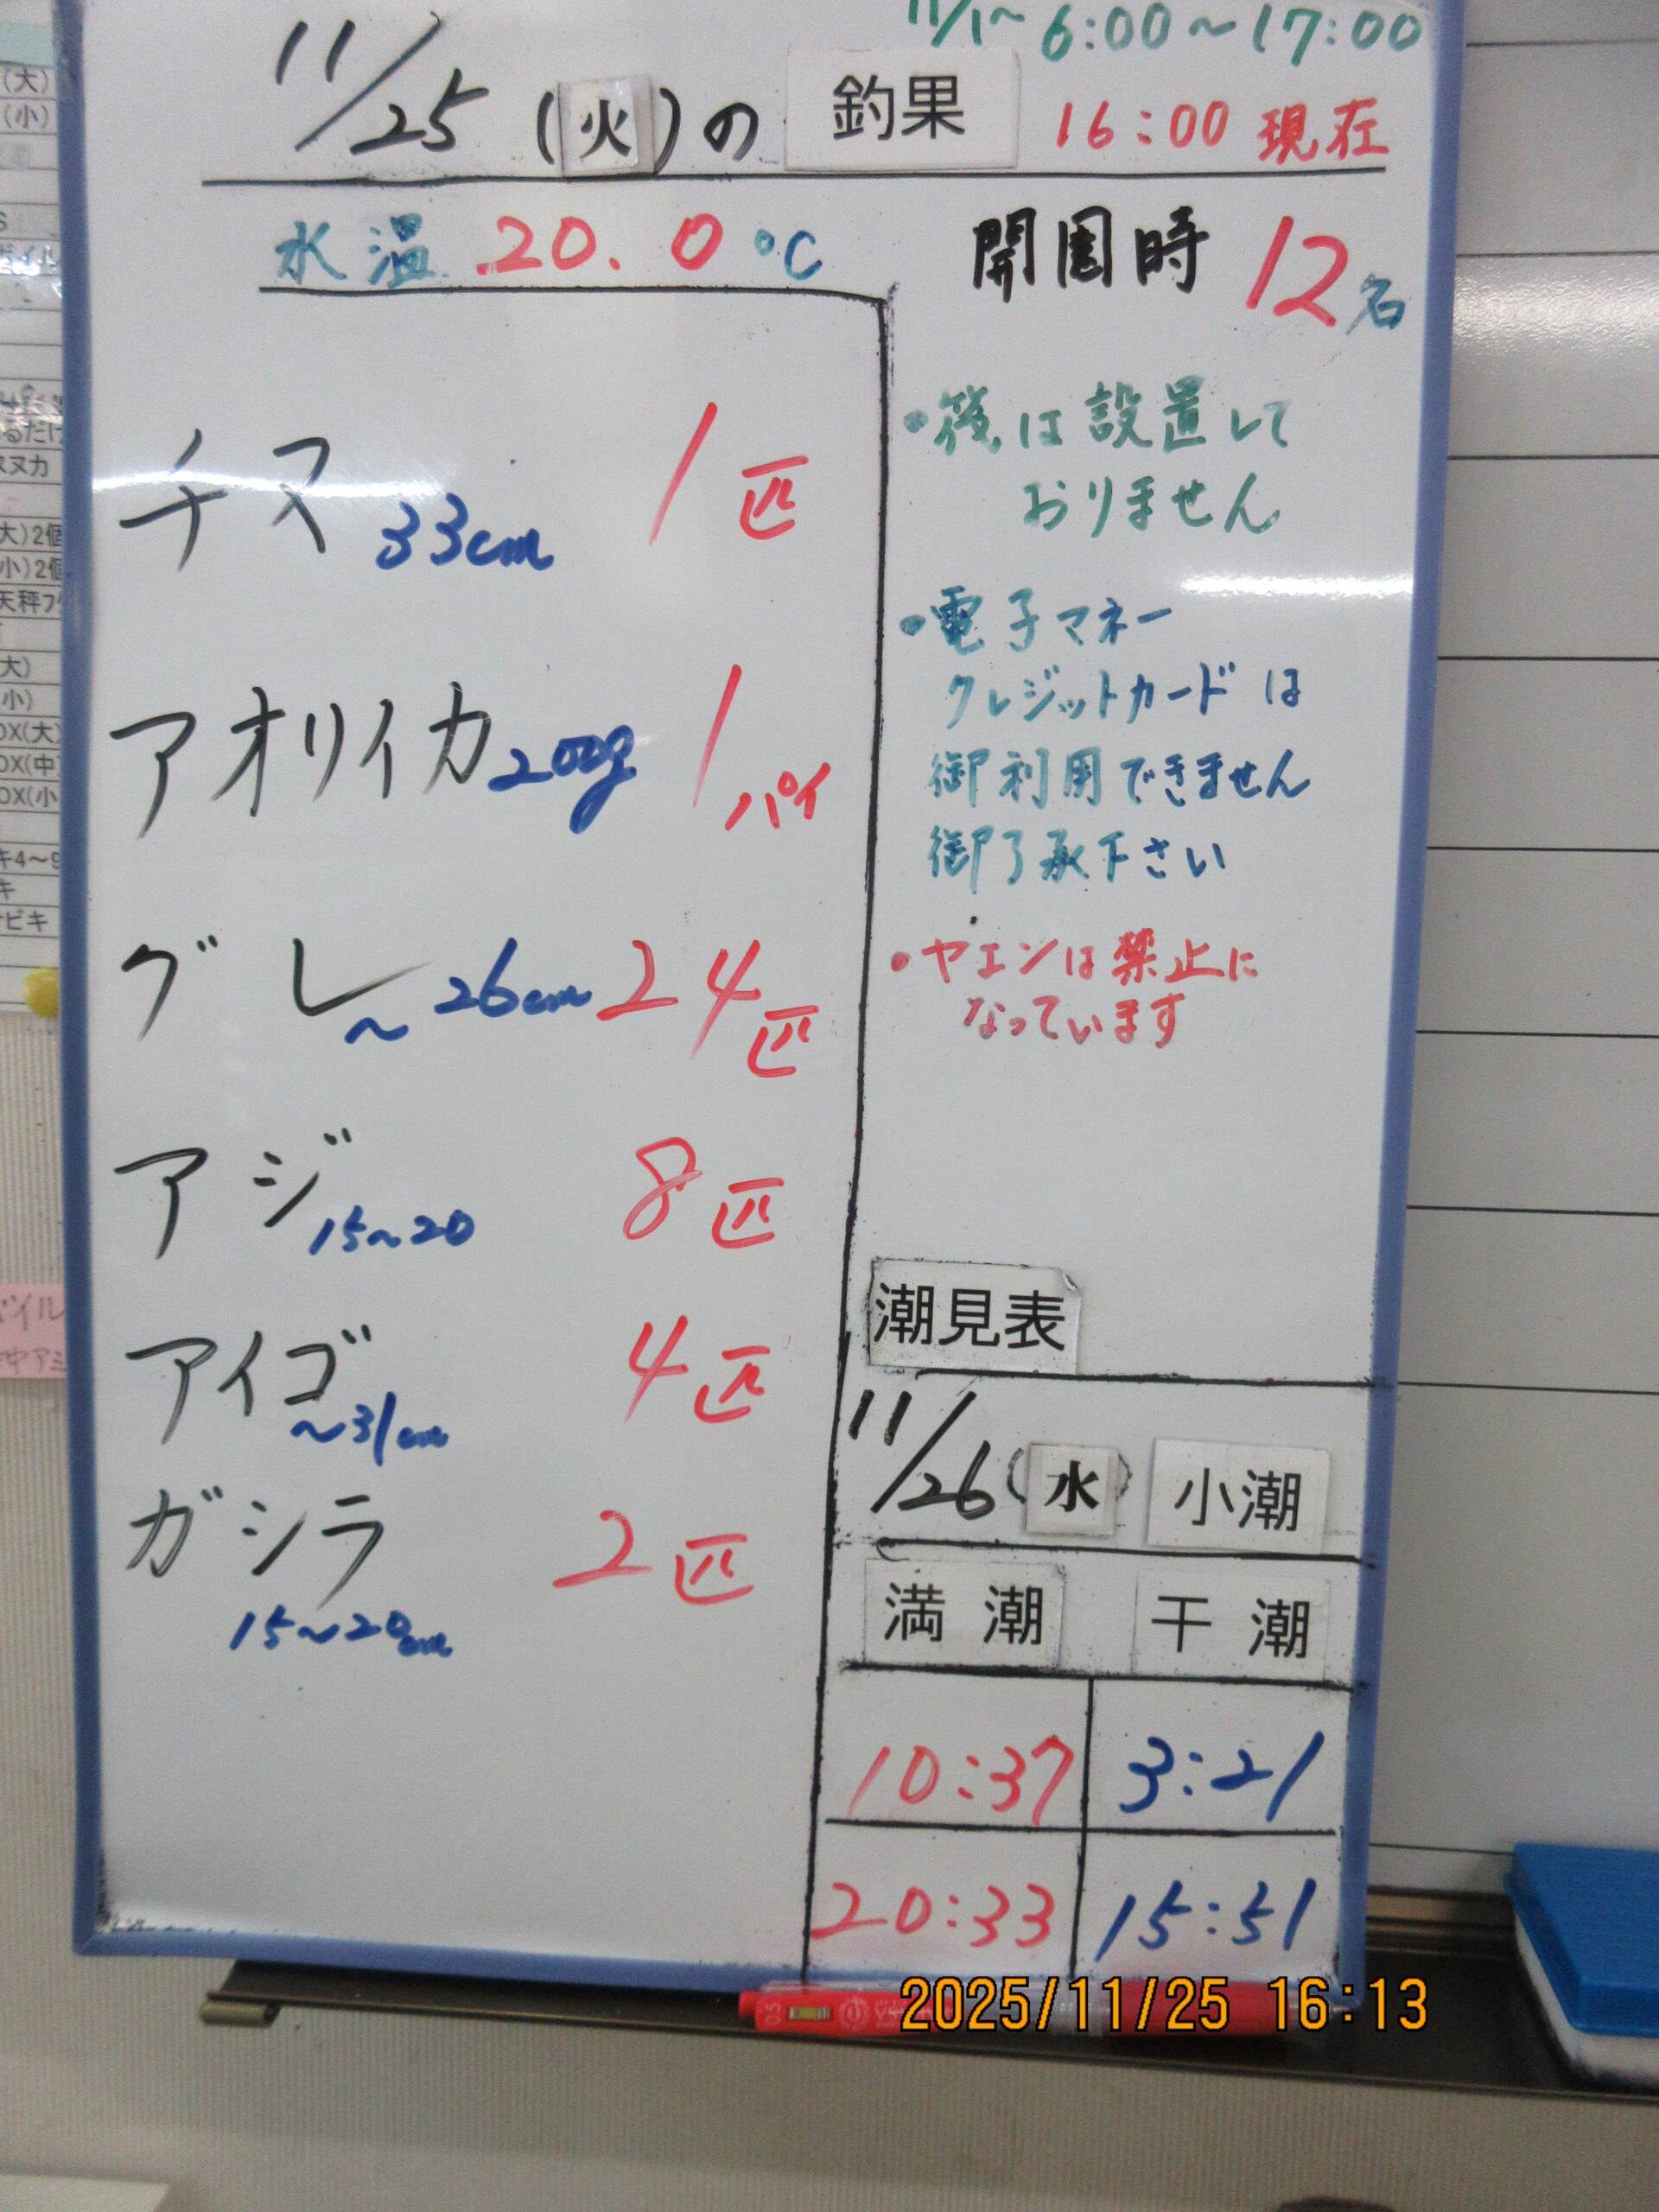 11/1～ 6:00～17:00
11/25(火)の 釣果 16:00 現在
水温 20.0℃
開園時 12名
チヌ 33cm 1匹
アオリイカ 200g 1パイ
グレ ～26cm 24匹
アジ 15～20 8匹
アイゴ ～31cm 4匹
ガシラ 15～20cm 2匹
・筏は設置して
おりません
・電子マネー
クレジットカードは
御利用できません
御了承下さい
・ヤエンは禁止に
なっています
潮見表
11/26(水) 小潮
満潮 干潮
10:37 3:21
20:33 15:51
2025/11/25 16:13
(大)
(小)
大)2個
小)2個
大)
小)
OX(大)
OX(中)
OX(小
ビキ